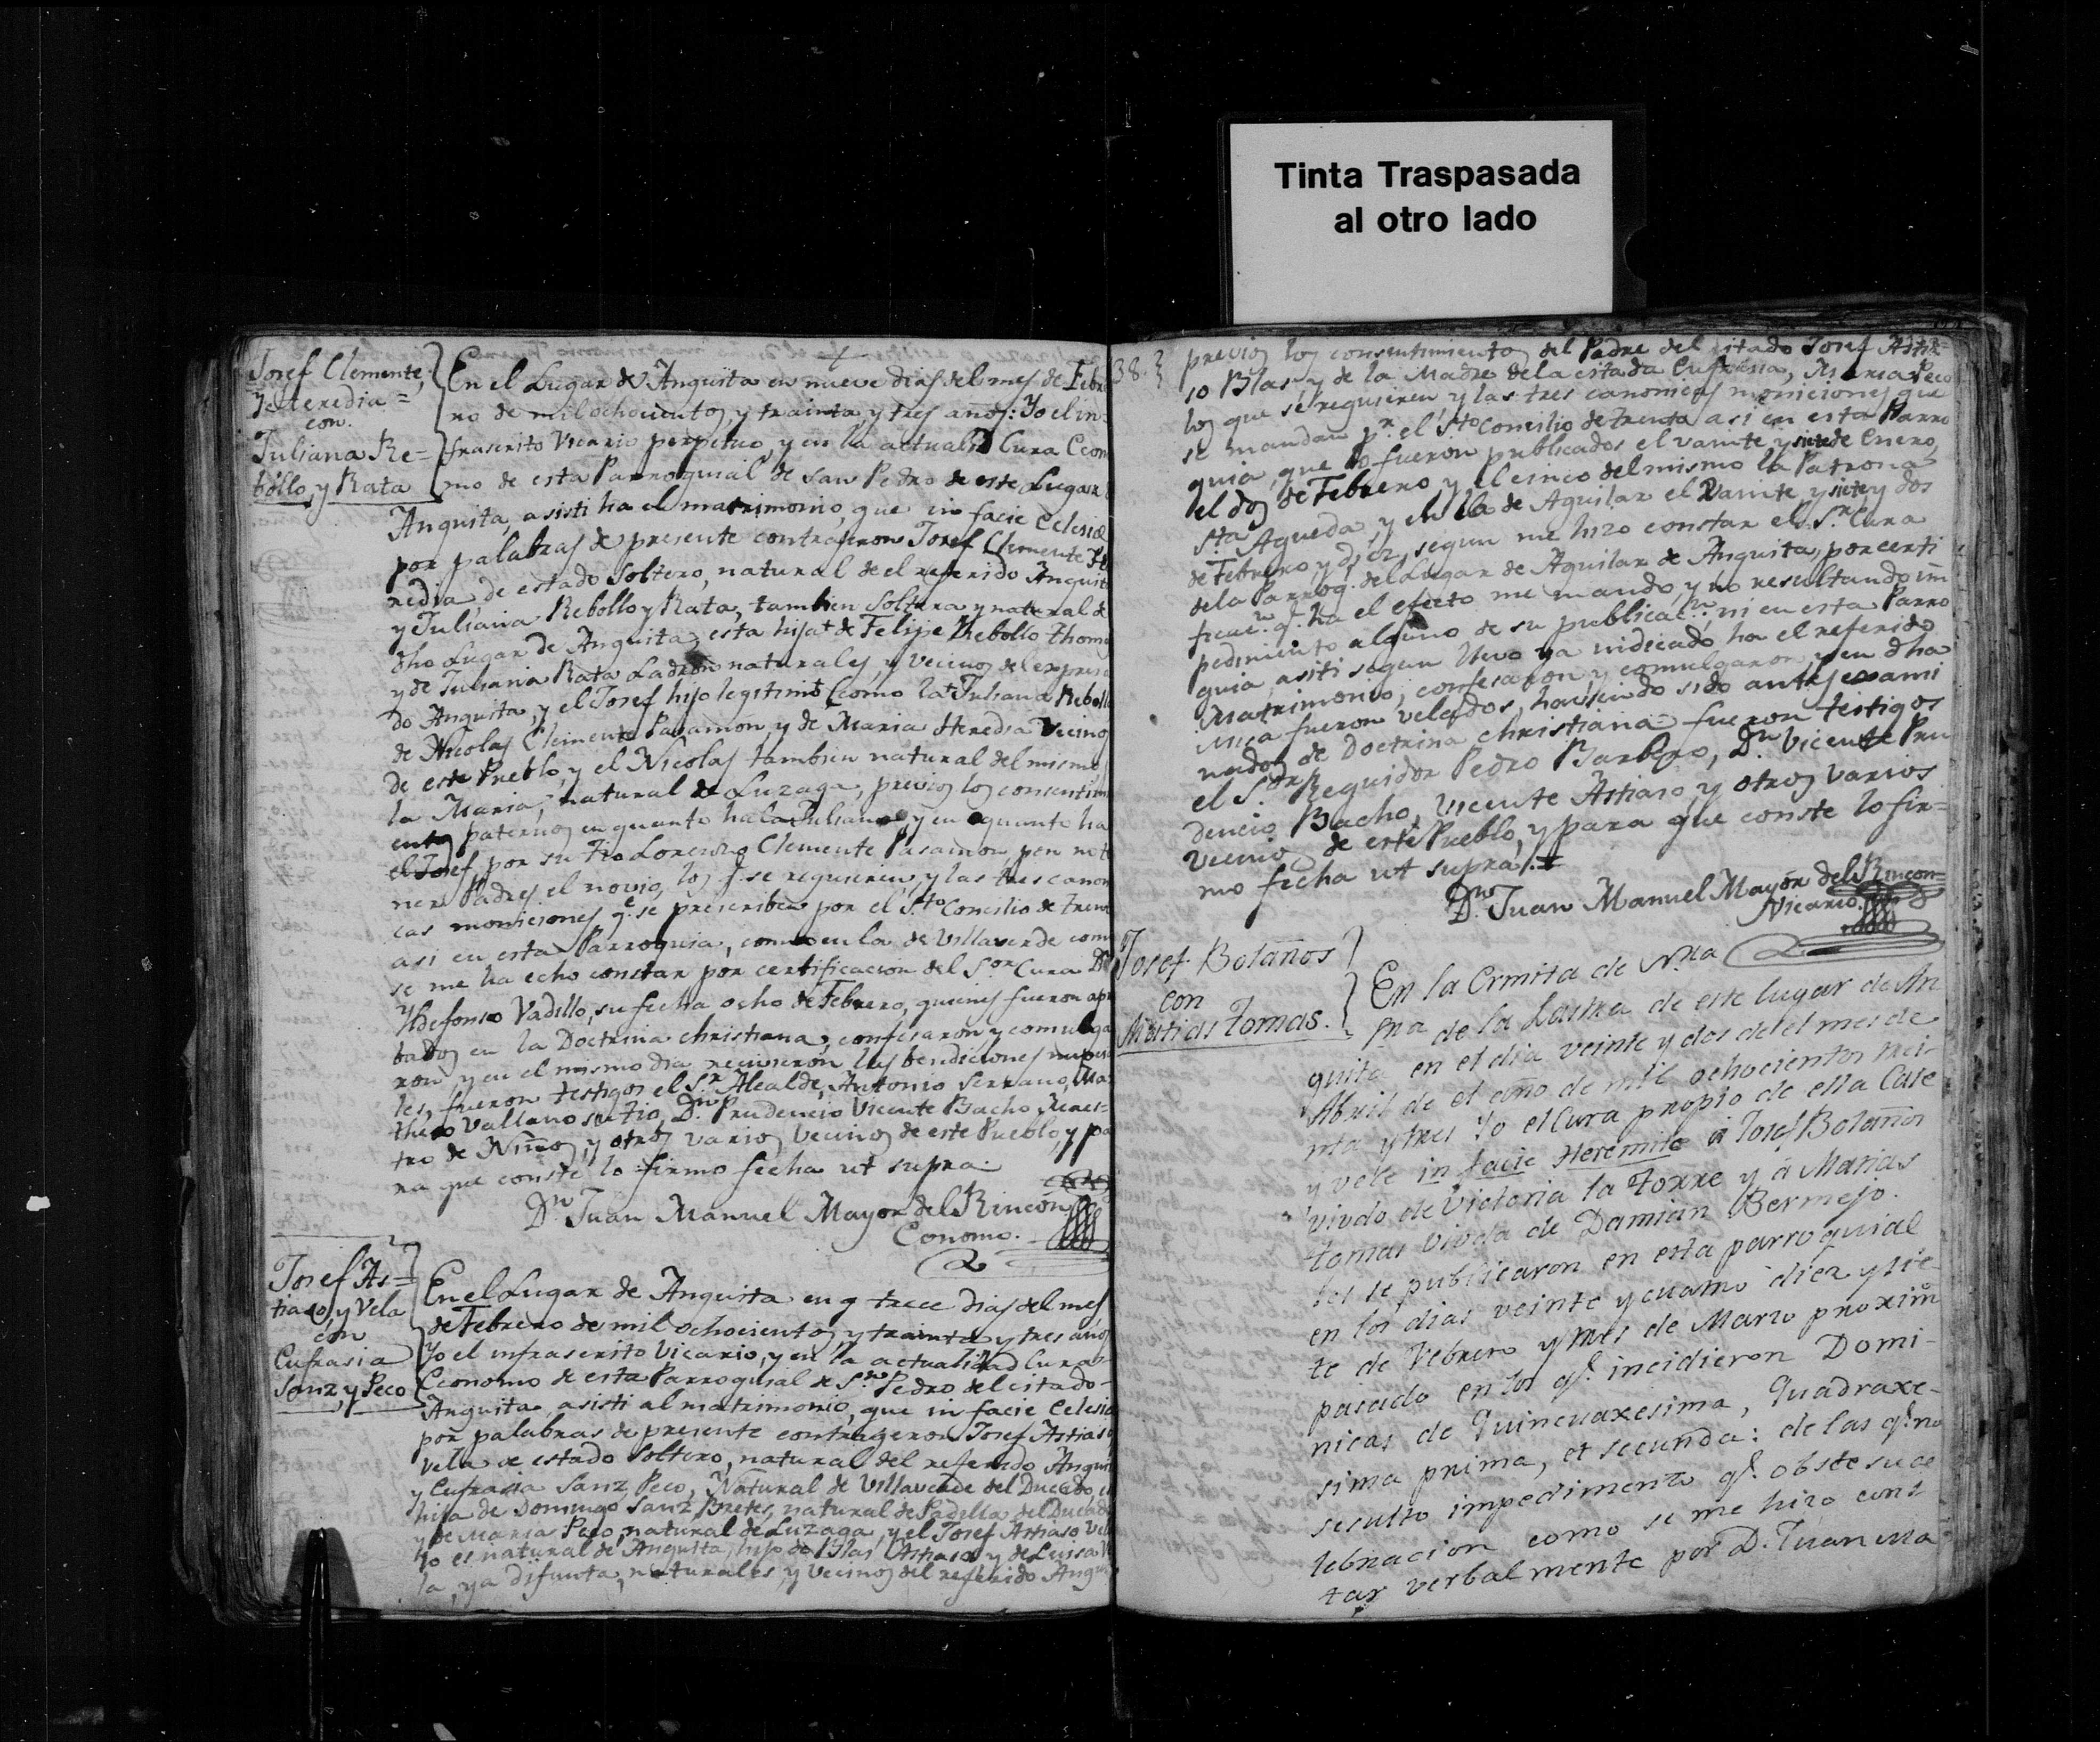 Tinta Traspasada
al otro lado
Josef Clemente,
y Heredia =
con.
Juliana Re=
bollo, y Rata
En el Lugar de Anguita en nueve dias del mes de Febre
ro de mil ochocientos y trainta, y tres años: Yo el in-
frascrito Vicario perpetuo, y en la actualid Cura Econo
mo de esta Parroquial de San Pedro de este Lugar
Anguita, asisti ha el matrimonio, que in facie Eclesiæ
por palabras de presente contrageron Josef Clemente He
redia, de estado Soltero, natural de el referido Anguita
y Juliana Rebollo y Rata, tambien Soltera y natural de
dho Lugar de Anguita, esta hija de Felipe Rebollo Thomas
y de Juliana Rata Ladron naturales, y vecinos del expresa
do Anguita, y el Josef hijo legitimo (como la Juliana Rebollo
de Nicolas Clemente Pasamon, y de Maria Heredia Vecinos
de este Pueblo, y el Nicolas tambien natural del mismo
la Maria, natural de Luzaga, previos los consentimi
entos paternos en quanto ha la Juliana, y en quanto ha
el Josef, por su tio Lorenzo Clemente Pasamon, por no te
ner Padres el novio, los q. se requieren, y las tres canoni
cas moniciones q.e se prescriben por el S.to Concilio de Trento
asi en esta Parroquia, como en la de Villaverde como
se me ha echo constar por certificacion del S.or Cura Dn
Yldefonso Vadillo, su fecha ocho de Febrero, quienes fueron apro
bados en la Doctrina christiana, confesaron y comulga
ron, y en el mismo dia recivieron las bendiciones nupcia
les, fueron testigos el S.r Alcalde, Antonio Serrano, Ma
theo Vallano su tio, D.n Prudencio Vicente Bacho Maes=
tro de Niños, y otros varios vecinos de este Pueblo, y pa
ra que conste lo firmo fecha ut supra.
D.n Juan Manuel Mayor del Rincón
Economo.
Josef As=
tiaso, y Vela
con
Eufrasia
Sanz, y Peco
En el Lugar de Anguita en trece dias del mes
de Febrero de mil ochocientos y trainta y tres años
Yo el infrascrito Vicario, y en la actualidad Cura
Economo de esta Parroquial de S.n Pedro del citado
Anguita asisti al matrimonio, que in facie Eclesiæ
por palabras de presente contrageron Josef Astiaso
Vela de estado Soltero, natural del referido Anguita
y Eufrasia Sanz Peco, Natural de Villaverde del Ducado,
hija de Domingo Sanz Bretes, natural de Padilla del Ducado
y de Maria Peco, natural de Luzaga, y el Josef Astiaso Vela
lo es natural de Anguita, hijo de Blas Astiaso y de Luisa Ve
la, ya difunta, naturales, y vecinos del referido Angui
38.
previos los consentimientos del Padre del citado Josef Astia=
so Blas y de la Madre de la citada Eufrasia, Maria Peco
los que se requieren y las tres canonicas moniciones que
se mandan p.r el S.to Concilio de trento asi en esta Parro
quia, que lo fueron publicados el vainte, y siete de Enero,
el dos de Febrero y el cinco del mismo la Patrona
S.ta Agueda, y en la de Aguilar el Vainte, y siete, y dos
de Febrero, y diez, segun me hizo constar el S.r Cura
de la Parroq. del Lugar de Aguilar de Anguita, por certi
ficac.n q. ha el efecto me mando, y no resultando im
pedimiento alguno de su publicac.n, ni en esta Parro
quia, asiti segun llevo ya indicado ha el referido
Matrimonio, confesaron y comulgaron, y en dha
Misa fueron velados, haviendo sido antes exami
nados de Doctrina christiana = fueron testigos
el S.or Regidor Pedro Barbero, D.n Vicente Pru
dencio Bacho, Vicente Astiaso, y otros varios
vecinos de este Pueblo, y para que conste lo fir=
mo fecha ut supra.
D.n Juan Manuel Mayor del Rincon=
Vicario.
Josef Bolaños
con
Matias Tomas.
En la Ermita de N.tra
Sra de la Lastra de este lugar de An
quita en el dia veinte y dos de el mes de
Abril de el año de mil ochocientos trei-
nta y tres Yo el Cura propio de ella Case
y vele in facie Heremite a Josef Bolaños
viudo de Victoria la Torre y á Matias
Tomas viuda de Damian Bermejo.
les se publicaron en esta parroquial
en los dias veinte y cuatro diez y sie-
te de Febrero y tres de Marzo proximo
pasado en los q.e incidieron Domi-
nicas de Quincuaxesima, Quadraxe-
sima prima, et secunda: de las q.e no
resulto impedimento q.e obste su ce
lebracion como se me hizo cons
tar verbalmente por D. Juan Ma